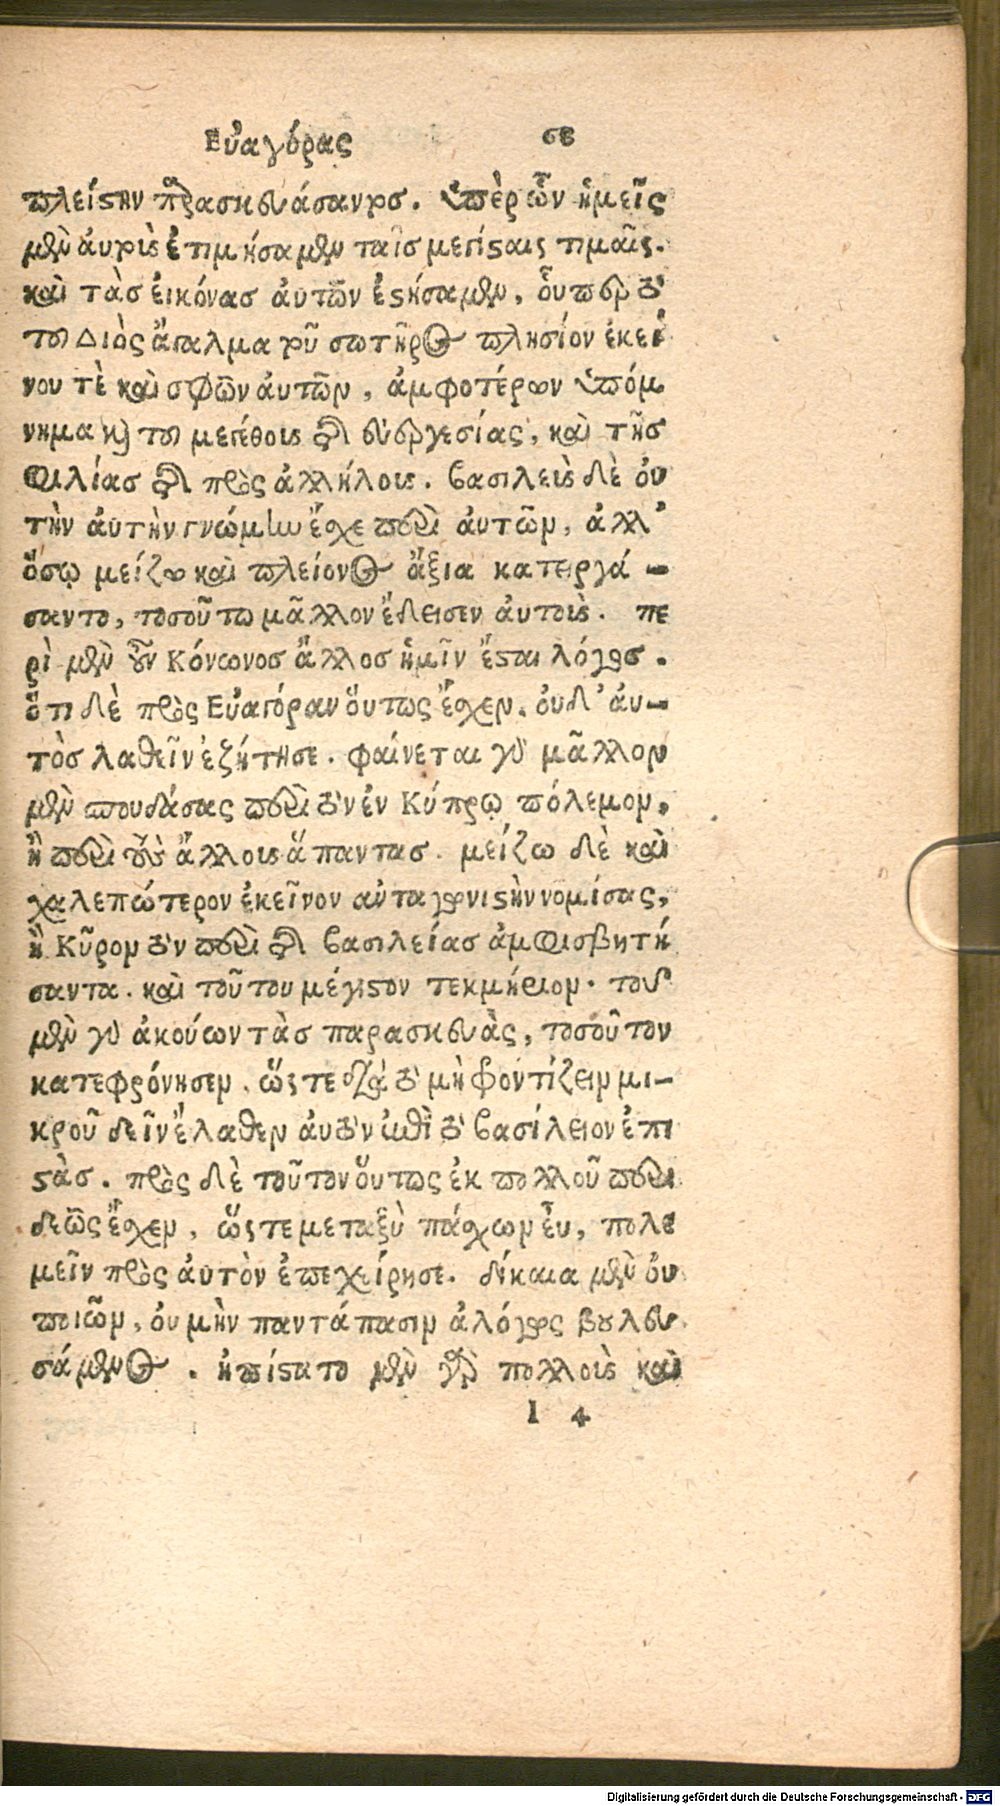 Εὐαγόρας σε
πλείστην παρασκευάσαντος. ὑπὲρ ὧν ἡμεῖς
μὲν αὐτοὺς ἐτιμήσαμεν ταῖς μεγίσταις τιμαῖς.
καὶ τὰς εἰκόνας αὐτῶν ἐστήσαμεν, οὗπερ τὸ
του Διὸς ἄγαλμα τοῦ σωτῆρος πλησίον ἐκεί
νου τὲ καὶ σφῶν αὐτῶν, ἀμφοτέρων ὑπόμ
νημα καὶ του μεγέθους τῆς εὐεργεσίας, καὶ τῆς
φιλίας τῆς πρὸς ἀλλήλους. βασιλεὺς δὲ οὐ
τὴν αὐτὴν γνώμην ἔχε περὶ αὐτῶν, ἀλλ'
ὅσῳ μείζω καὶ πλείονος ἄξια κατειργά-
σαντο, τοσοῦτω μᾶλλον ἔδεισεν αὐτοὺς. πε
ρὶ μὲν οὖν Κόνωνος ἄλλος ἡμῖν ἔσται λόγος.
ὅτι δὲ πρὸς Εὐαγόραν οὕτως ἔχεν. οὐδ' αὐ-
τὸς λαθεῖν ἐζήτησε. φαίνεται γὰρ μᾶλλον
μὲν σπουδάσας περὶ τὸν ἐν Κύπρῳ πόλεμον,
ἢ περὶ τοὺς ἄλλους ἅπαντας. μείζω δὲ καὶ
χαλεπώτερον ἐκεῖνον ἀνταγωνιστὴν νομίσας,
ἢ Κῦρον τὸν περὶ τῆς βασιλείας ἀμφισβητή
σαντα. καὶ τοῦτου μέγιστον τεκμήριον. τοῦ
μὲν γὰρ ἀκούων τὰς παρασκευὰς, τοσοῦτον
κατεφρόνησεν. ὥστε διὰ τὸ μὴ φροντίζειν μι-
κροῦ δεῖν ἔλαθεν αὐτὸν ἐπὶ τὸ βασίλειον ἐπι
στὰς. πρὸς δὲ τοῦτον οὕτως ἐκ πολλοῦ περι
δεῶς ἔχεν, ὥστε μεταξὺ πάσχων εὖ, πολε
μεῖν πρὸς αὐτὸν ἐπεχείρησε. δίκαια μὲν οὐ
ποιῶν, οὐ μὴν παντάπασιν ἀλόγως βουλευ
σάμενος. ἠπίστατο μὲν γὰρ πολλοὺς καὶ
I 4
Digitalisierung gefördert durch die Deutsche Forschungsgemeinschaft - DFG